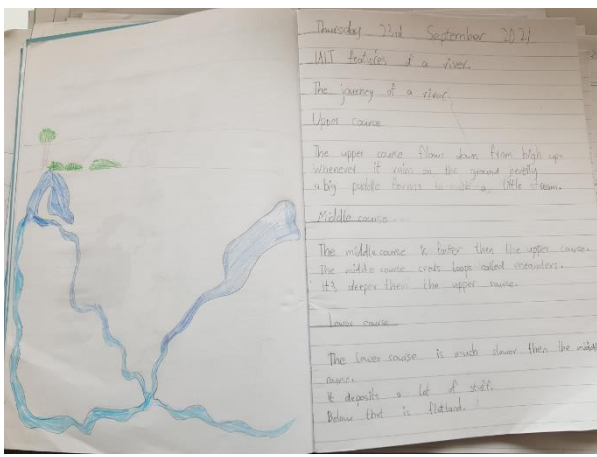 Thursday 23rd September 2021
features of a river.
The journey of a river
Upper course
The upper course flows down from high up.
Whenever it rains on the ground
a big puddle forms to make a little stream.
Middle course
The middle course is faster then the upper course.
The middle course loops called
It's deeper then the upper course.
Lower course
The lower course is much slower then the middle
course.
It deposits a lot of stuff.
Below that is flatland.